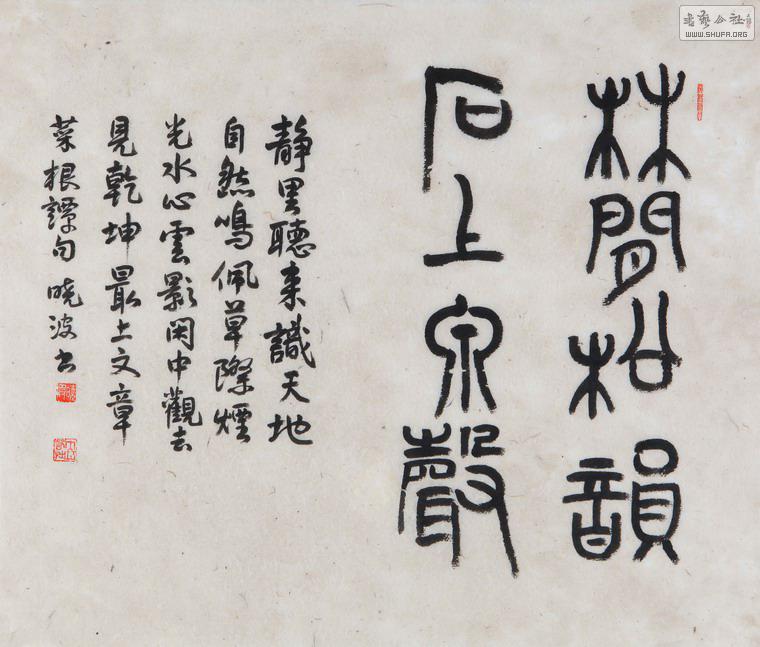 林間松韻
石上泉聲
静里聽来識天地
自然鳴佩草際煙
光水心雲影閑中觀去
見乾坤最上文章
菜根譚句 曉波书
書藝公社
WWW.SHUFA.ORG